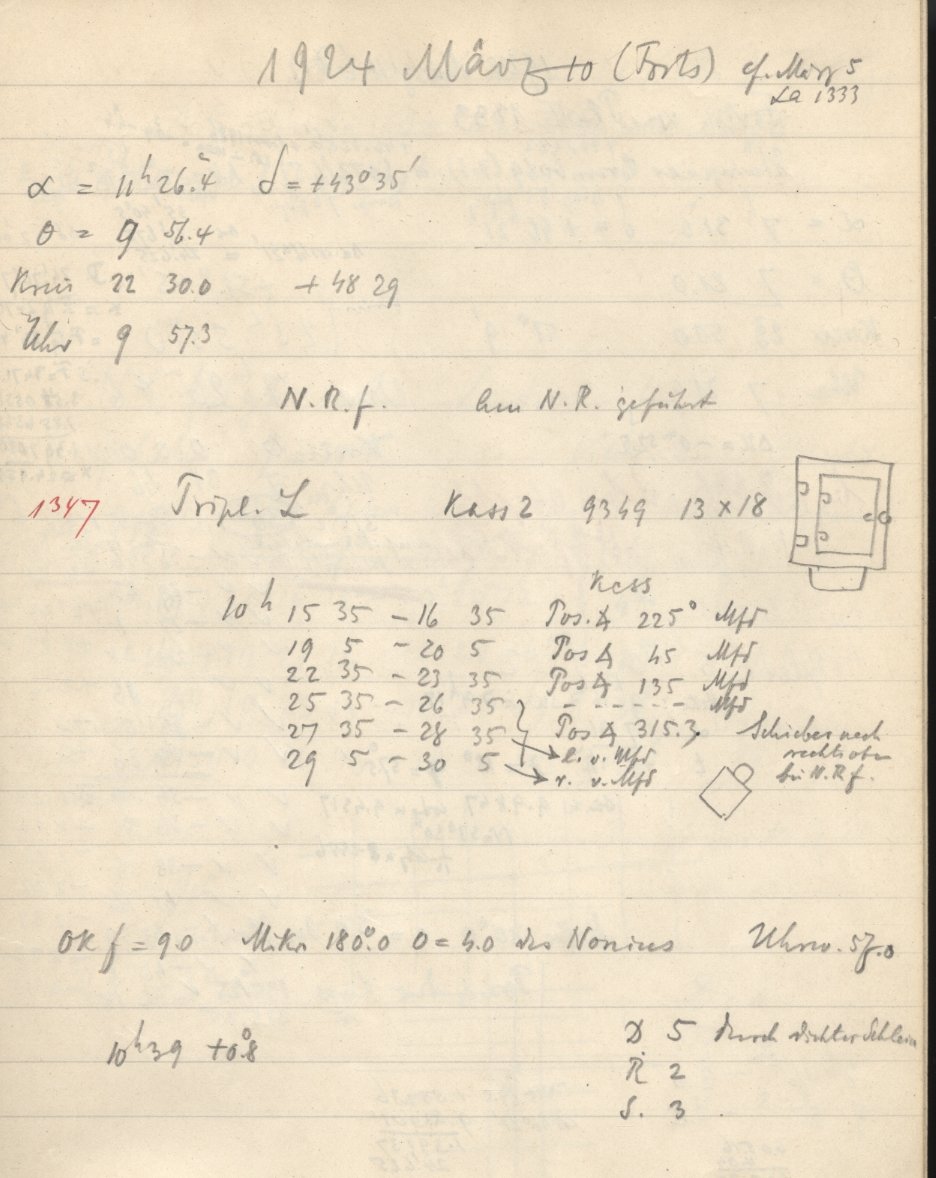 1924 März 10 (Forts) cf. März 5
La 1333
α = 11h 26.4 δ = +43° 35'
θ = 9 56.4
Kreis 22 30.0 +48 29
Uhr 9 57.3
N.R.f. N.R. geführt
1347 Tripl. L Kass 2 9349 13 x 18
Kass
10h 15 35 – 16 35 Pos.∡ 225° Mfd
19 5 – 20 5 Pos ∡ 45 Mfd
22 35 – 23 35 Pos ∡ 135 Mfd
25 35 – 26 35 - - - - - - Mfd
27 35 – 28 35 Pos ∡ 315.3 Schieber nach
rechts oben
29 5 – 30 5 l. v. Mfd
bei N.R.f.
r. v. Mfd
OK f = 9.0 Mikr 180°.0 0 = 4.0 des Nonius Uhrw. 57.0
10h 39 +0°.8
D 5 durch dichter Schleier
R 2
S. 3